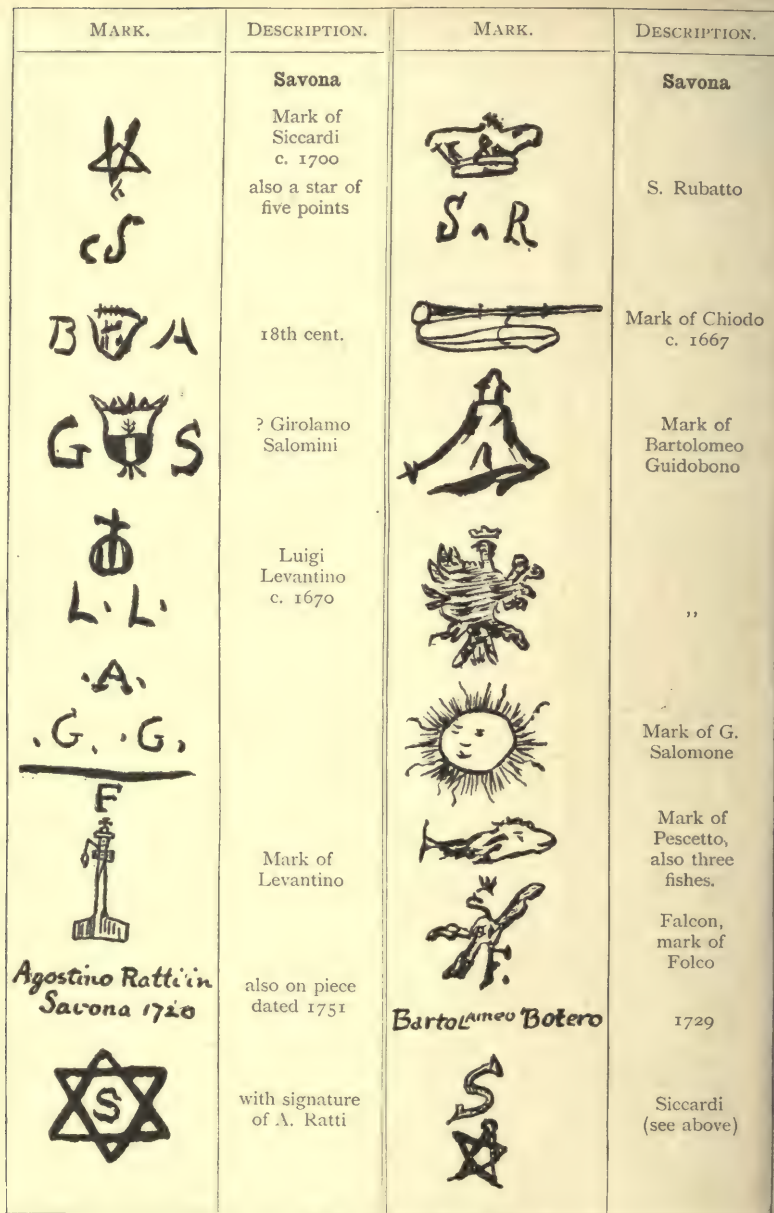 MARK.
DESCRIPTION.
Savona
Mark of
Siccardi
c. 1700
also a star of
five points
cS
B A
18th cent.
G S
? Girolamo
Salomini
L. L.
Luigi
Levantino
c. 1670
.A.
.G. .G.
F
Mark of
Levantino
Agostino Ratti in
Savona 1720
also on piece
dated 1751
S
with signature
of A. Ratti
MARK.
DESCRIPTION.
Savona
S R
S. Rubatto
Mark of Chiodo
c. 1667
Mark of
Bartolomeo
Guidobono
,,
Mark of G.
Salomone
Mark of
Pescetto,
also three
fishes.
S
F.
Falcon,
mark of
Folco
Bartolameo Botero
1729
S
Siccardi
(see above)